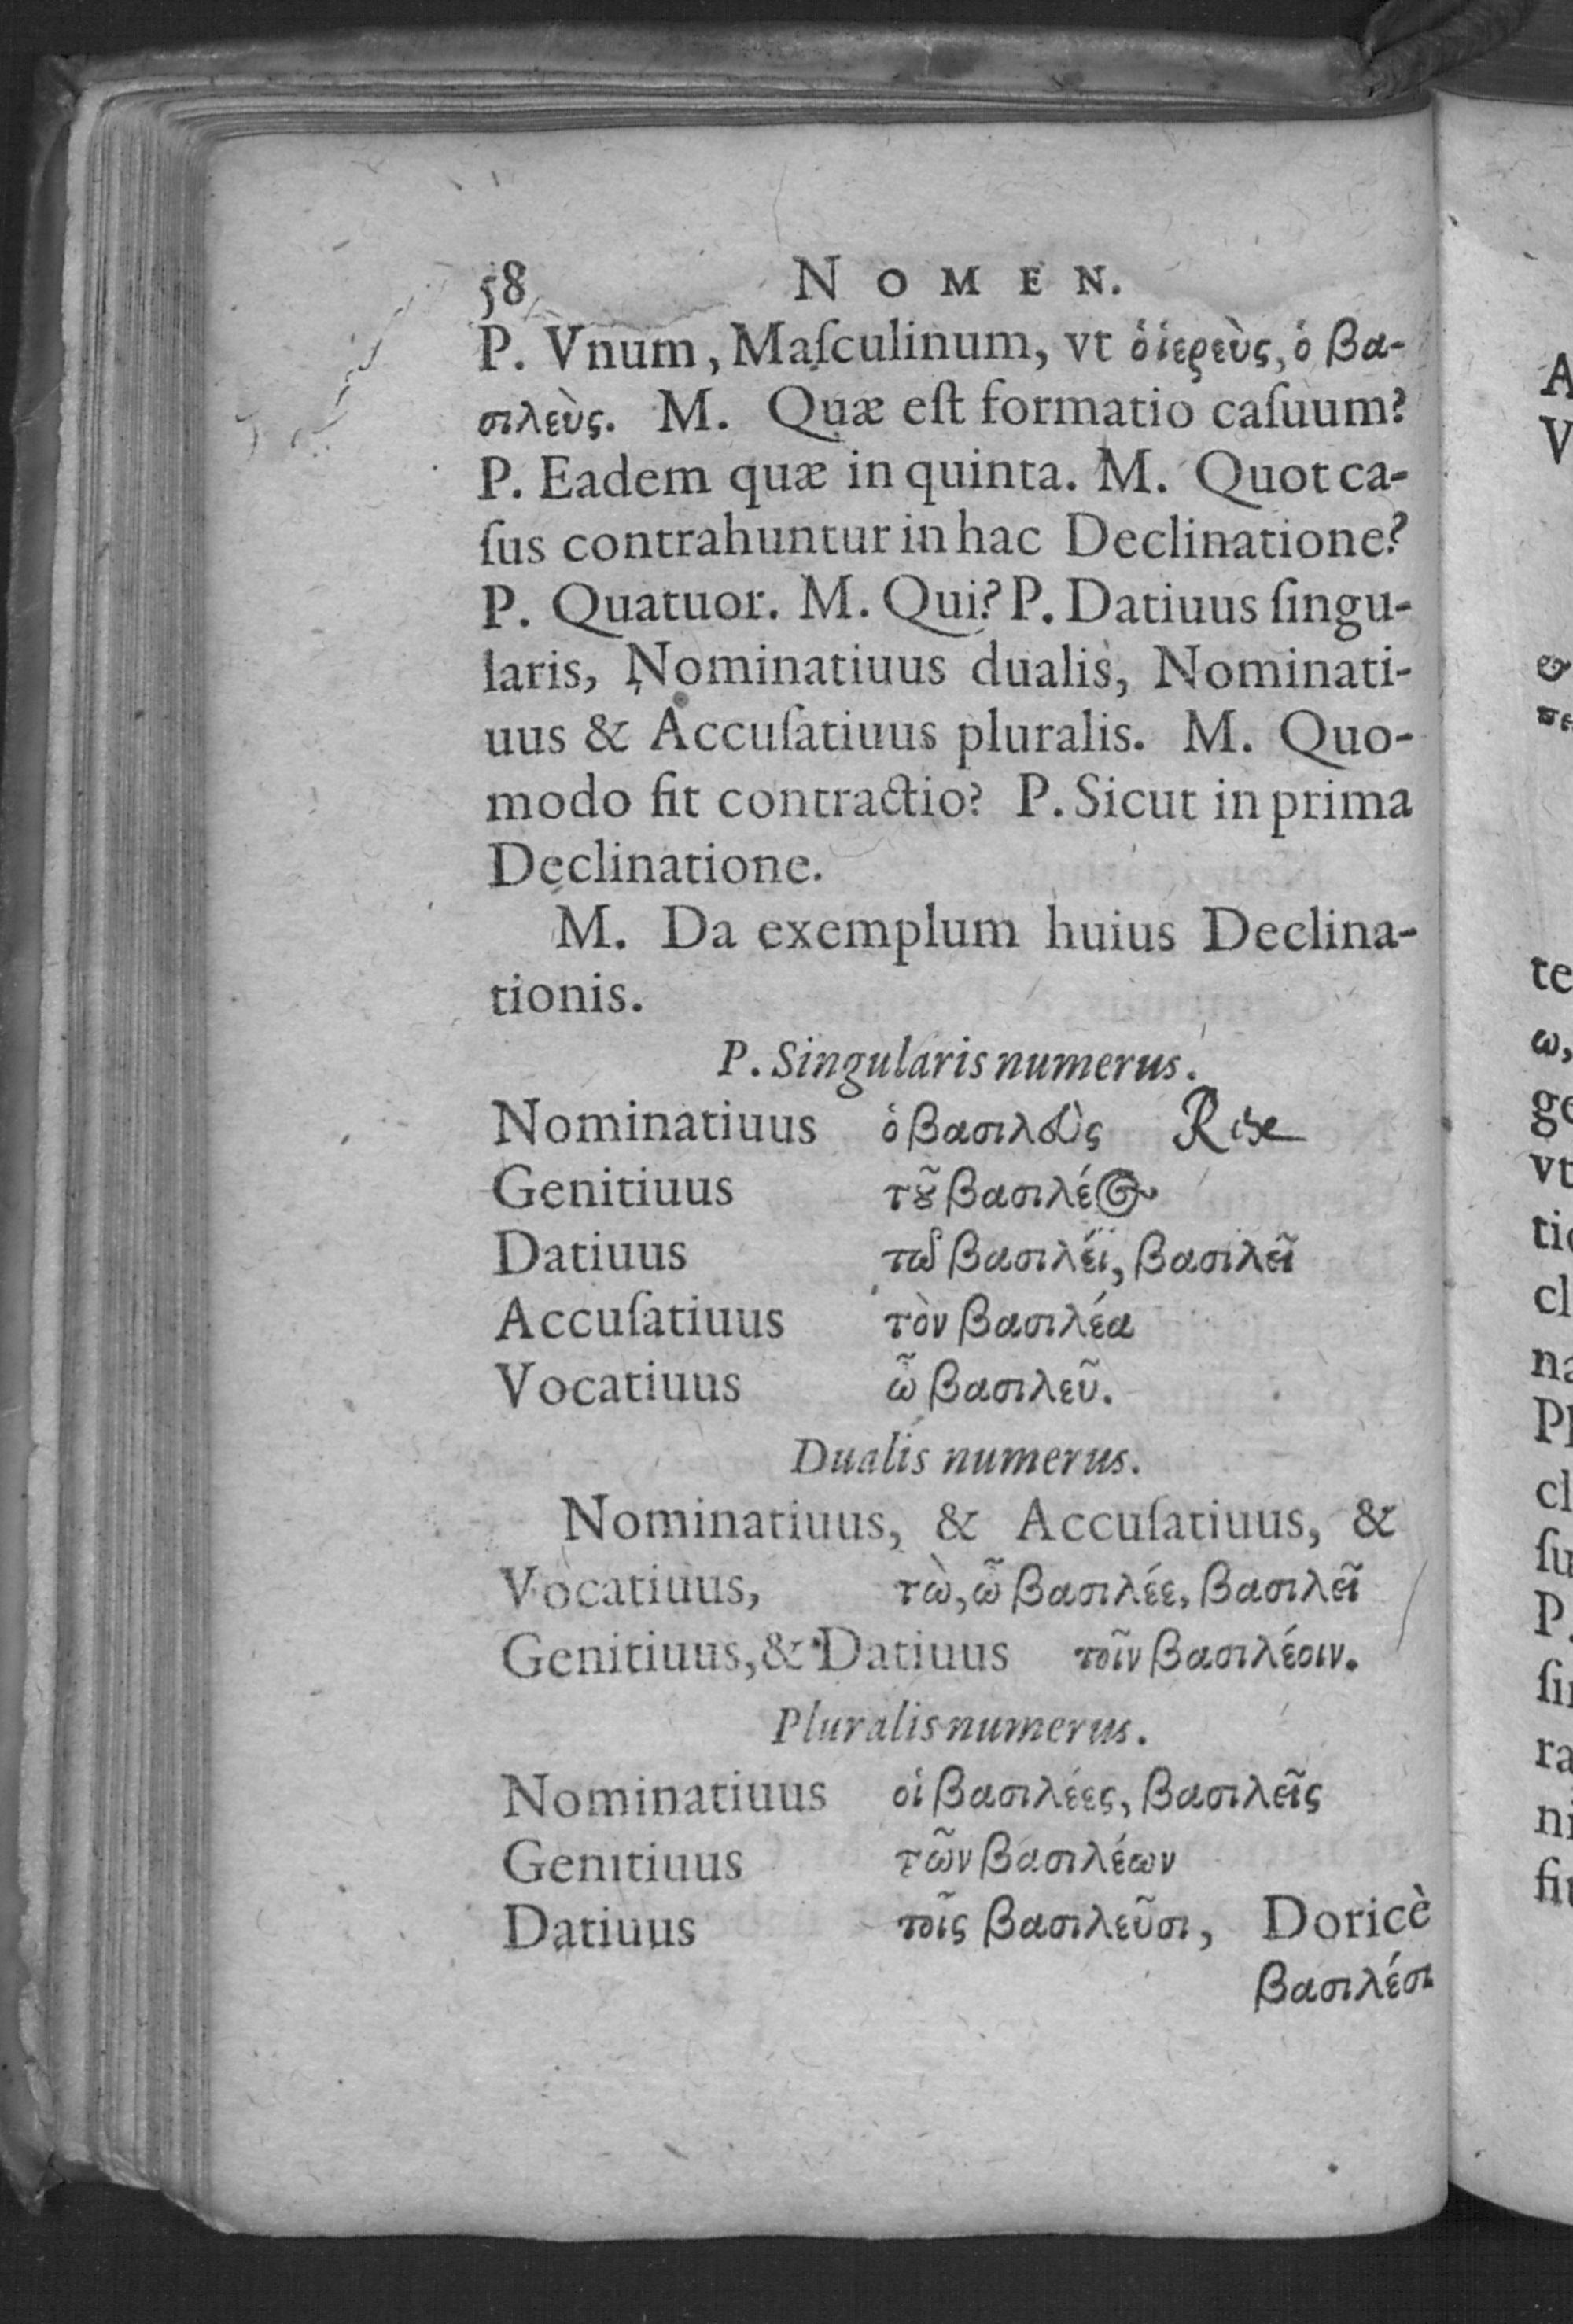 58 NOMEN.
P. Vnum, Maſculinum, vt ὁ ἱερεὺς, ὁ βα-
σιλεὺς. M. Quæ eſt formatio caſuum?
P. Eadem quæ in quinta. M. Quot ca-
ſus contrahuntur in hac Declinatione?
P. Quatuor. M. Qui? P. Datiuus ſingu-
laris, Nominatiuus dualis, Nominati-
uus & Accuſatiuus pluralis. M. Quo-
modo fit contractio? P. Sicut in prima
Declinatione.
M. Da exemplum huius Declina-
tionis.
P. Singularis numerus.
Nominatiuus ὁ βασιλεὺς
Genitiuus τοῦ βασιλέος
Datiuus τῷ βασιλέϊ, βασιλεῖ
Accuſatiuus τὸν βασιλέα
Vocatiuus ὦ βασιλεῦ.
Dualis numerus.
Nominatiuus, & Accuſatiuus, &
Vocatiuus, τὼ, ὦ βασιλέε, βασιλεῖ
Genitiuus, & Datiuus τοῖν βασιλέοιν.
Pluralis numerus.
Nominatiuus οἱ βασιλέες, βασιλεῖς
Genitiuus τῶν βασιλέων
Datiuus τοῖς βασιλεῦσι, Doricè
βασιλέσι